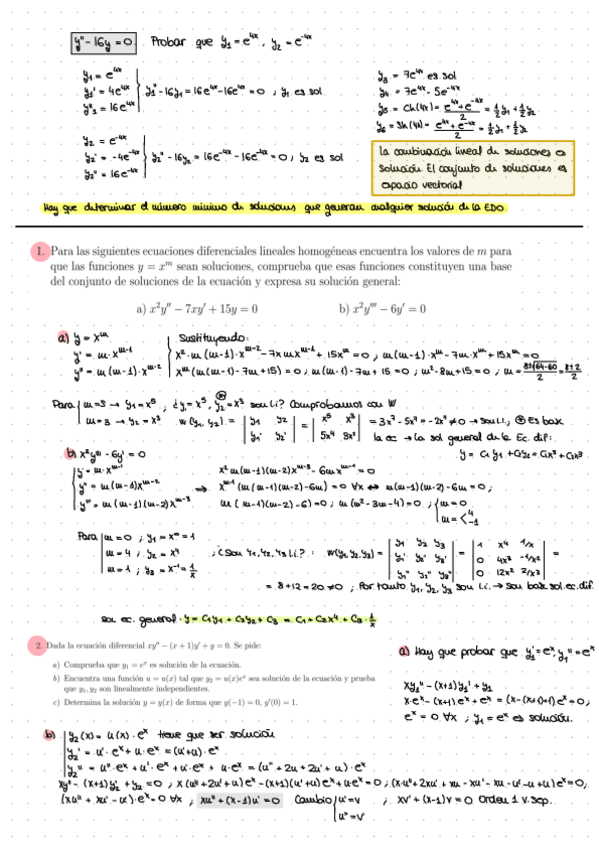 y'' - 16y = 0. Probar que y₁ = e^{4x}, y₂ = e^{-4x}
y₁ = e^{4x}
y₁' = 4e^{4x} } y₁'' - 16y₁ = 16e^{4x} - 16e^{4x} = 0, y₁ es sol
y₁'' = 16e^{4x}
y₃ = 7e^{4x} es sol
y₄ = 7e^{4x} - 5e^{-4x}
y₅ = Ch(4x) = (e^{4x} + e^{-4x})/2 = 1/2 y₁ + 1/2 y₂
y₆ = Sh(4x) = (e^{4x} + e^{-4x})/2 = 1/2 y₁ + 1/2 y₂
y₂ = e^{-4x}
y₂' = -4e^{-4x} } y₂'' - 16y₂ = 16e^{-4x} - 16e^{-4x} = 0, y₂ es sol
y₂'' = 16e^{-4x}
La combinación lineal de soluciones es
solución. El conjunto de soluciones es
espacio vectorial
Hay que determinar el número mínimo de soluciones que generan cualquier solución de la EDO
1. Para las siguientes ecuaciones diferenciales lineales homogéneas encuentra los valores de m para
que las funciones y = x^m sean soluciones, comprueba que esas funciones constituyen una base
del conjunto de soluciones de la ecuación y expresa su solución general:
a) x²y'' - 7xy' + 15y = 0 b) x²y''' - 6y' = 0
a) y = x^m
y' = m·x^{m-1}
y'' = m(m-1)·x^{m-2}
Sustituyendo:
x²·m(m-1)·x^{m-2} - 7x m x^{m-1} + 15x^m = 0; m(m-1)·x^m - 7m·x^m + 15x^m = 0
x^m(m(m-1) - 7m + 15) = 0; m(m-1) - 7m + 15 = 0; m² - 8m + 15 = 0; m = (8±√(64-60))/2 = (8±2)/2
Para { m=5 → y₁ = x⁵, ¿y₁ = x⁵, y₂ = x³ son l.i? Comprobamos con W
m=3 → y₂ = x³ W(y₁, y₂) = | y₁ y₂ | = | x⁵ x³ | = 3x⁷ - 5x⁷ = -2x⁷ ≠ 0 → son l.i, es base
| y₁' y₂' | | 5x⁴ 3x² | la cc → la sol general de la Ec. dif:
y = C₁y₁ + C₂y₂ = C₁x⁵ + C₂x³
b) x²y''' - 6y' = 0
y' = m·x^{m-1}
y'' = m(m-1)x^{m-2}
y''' = m(m-1)(m-2)x^{m-3}
x² m(m-1)(m-2)x^{m-3} - 6m x^{m-1} = 0
⇒ x^{m-1}(m(m-1)(m-2) - 6m) = 0 ∀x ↔ m(m-1)(m-2) - 6m = 0;
m((m-1)(m-2) - 6) = 0; m(m² - 3m - 4) = 0; { m=0
m = < 4 -1
Para { m=0; y₁ = x⁰ = 1
m=4; y₂ = x⁴ ; ¿Son y₁, y₂, y₃ l.i.? : W(y₁, y₂, y₃) = | y₁ y₂ y₃ | = | 1 x⁴ 1/x | =
| y₁' y₂' y₃' | | 0 4x³ -1/x² |
m=1; y₃ = x⁻¹ = 1/x | y₁'' y₂'' y₃'' | | 0 12x² 2/x³ |
= 8+12 = 20 ≠ 0; Por tanto y₁, y₂, y₃ son l.i. → son base sol. ec. dif.
sol ec. general · y = C₁y₁ + C₂y₂ + C₃ = C₁ + C₂x⁴ + C₃·1/x
2. Dada la ecuación diferencial xy'' - (x + 1)y' + y = 0. Se pide:
a) Comprueba que y₁ = e^x es solución de la ecuación.
b) Encuentra una función u = u(x) tal que y₂ = u(x)e^x sea solución de la ecuación y prueba
que y₁, y₂ son linealmente independientes.
c) Determina la solución y = y(x) de forma que y(-1) = 0, y'(0) = 1.
a) Hay que probar que y₁' = e^x, y₁'' = e^x
xy₁'' - (x+1)y₁' + y₁
x·e^x - (x+1)e^x + e^x = (x-(x+1)+1)e^x = 0;
e^x = 0 ∀x; y₁ = e^x es solución.
b) y₂(x) = u(x)·e^x tiene que ser solución
y₂' = u'·e^x + u·e^x = (u'+u)·e^x
y₂'' = u''·e^x + u'·e^x + u'·e^x + u·e^x = (u'' + 2u' + u)·e^x
xy'' - (x+1)y₂ + y₂ = 0; x(u''+2u'+u)e^x - (x+1)(u'+u)e^x + u·e^x = 0; (x·u''+2xu' + xu - xu' - xu - u' - u + u)e^x = 0;
(xu'' + xu' - u')·e^x = 0 ∀x; xu'' + (x-1)u' = 0 Cambio { u' = v ; xv' + (x-1)v = 0 Orden 1 v. sep.
u'' = v'